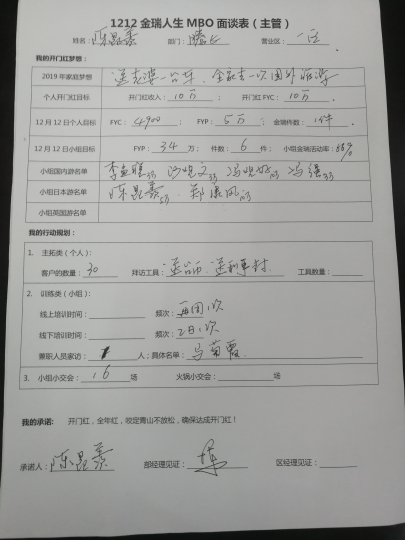 1212 金瑞人生 MBO 面谈表（主管）
姓名： 部门：腾飞 营业区：一区
我的开门红梦想：
2019 年家庭梦想 送老婆一台车，全家去一次国外旅游
个人开门红目标 开门红收入：10万 开门红 FYC：10万
12 月 12 日个人目标 FYC：4900 FYP：5万 金瑞件数：1件
12 月 12 日小组目标 FYP：34 万； 件数：6 件 小组金瑞活动率：
小组国内游名单
小组日本游名单
小组英国游名单
我的行动规划：
1. 主拓类（个人）：
客户的数量：30 拜访工具： 工具数量：
2. 训练类（小组）：
线上培训时间： 频次：
线下培训时间： 频次：2日1次
兼职人员家访：1 人；具体名单：马菊霞
3. 小组小交会：16 场 火锅小交会： 场
我的承诺: 开门红，全年红，咬定青山不放松，确保达成开门红！
承诺人： 部经理见证： 区经理见证：